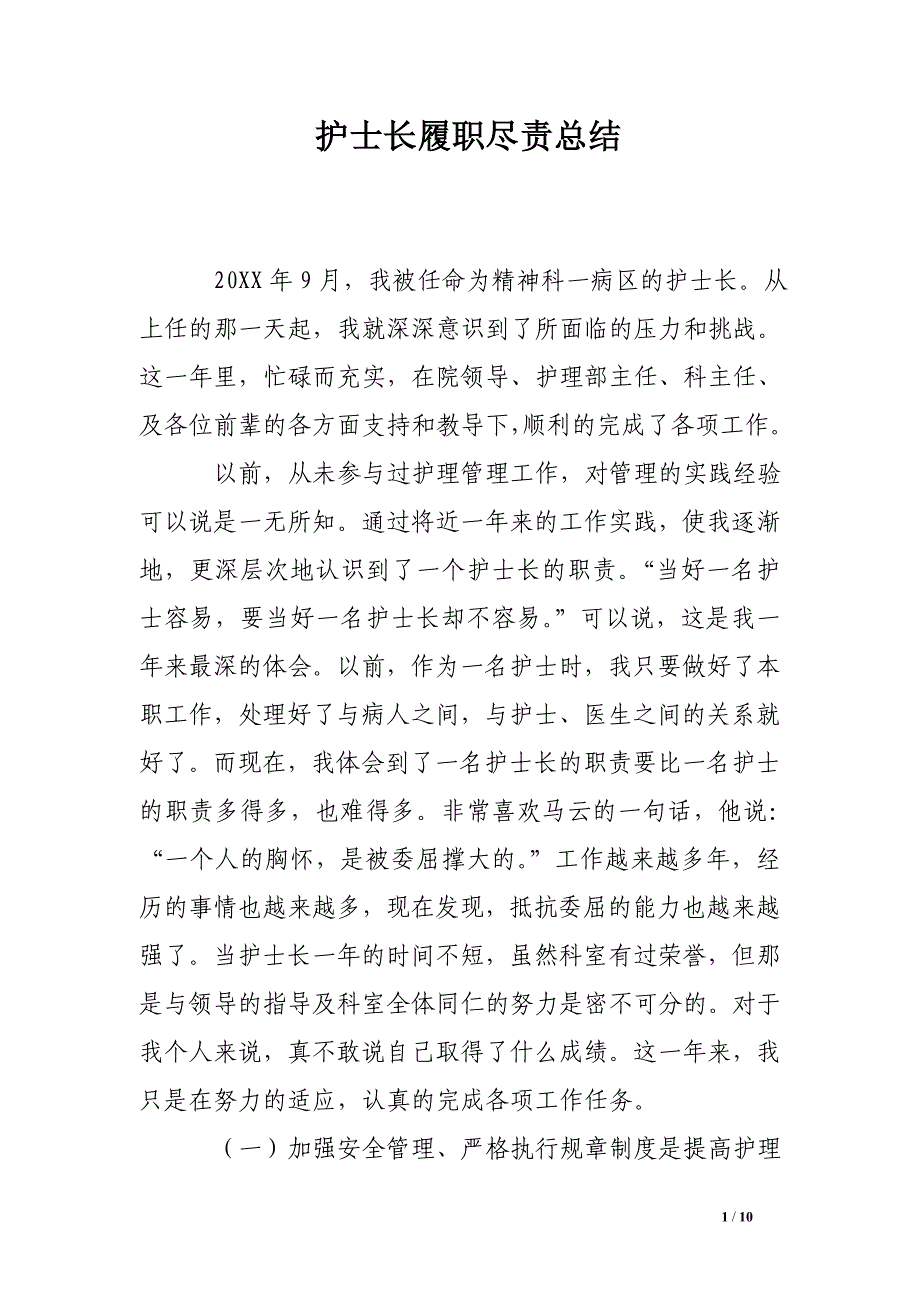 护士长履职尽责总结
20XX 年 9 月，我被任命为精神科一病区的护士长。从
上任的那一天起，我就深深意识到了所面临的压力和挑战。
这一年里，忙碌而充实，在院领导、护理部主任、科主任、
及各位前辈的各方面支持和教导下，顺利的完成了各项工作。
以前，从未参与过护理管理工作，对管理的实践经验
可以说是一无所知。通过将近一年来的工作实践，使我逐渐
地，更深层次地认识到了一个护士长的职责。“当好一名护
士容易，要当好一名护士长却不容易。”可以说，这是我一
年来最深的体会。以前，作为一名护士时，我只要做好了本
职工作，处理好了与病人之间，与护士、医生之间的关系就
好了。而现在，我体会到了一名护士长的职责要比一名护士
的职责多得多，也难得多。非常喜欢马云的一句话，他说：
“一个人的胸怀，是被委屈撑大的。”工作越来越多年，经
历的事情也越来越多，现在发现，抵抗委屈的能力也越来越
强了。当护士长一年的时间不短，虽然科室有过荣誉，但那
是与领导的指导及科室全体同仁的努力是密不可分的。对于
我个人来说，真不敢说自己取得了什么成绩。这一年来，我
只是在努力的适应，认真的完成各项工作任务。
（一）加强安全管理、严格执行规章制度是提高护理
1 / 10